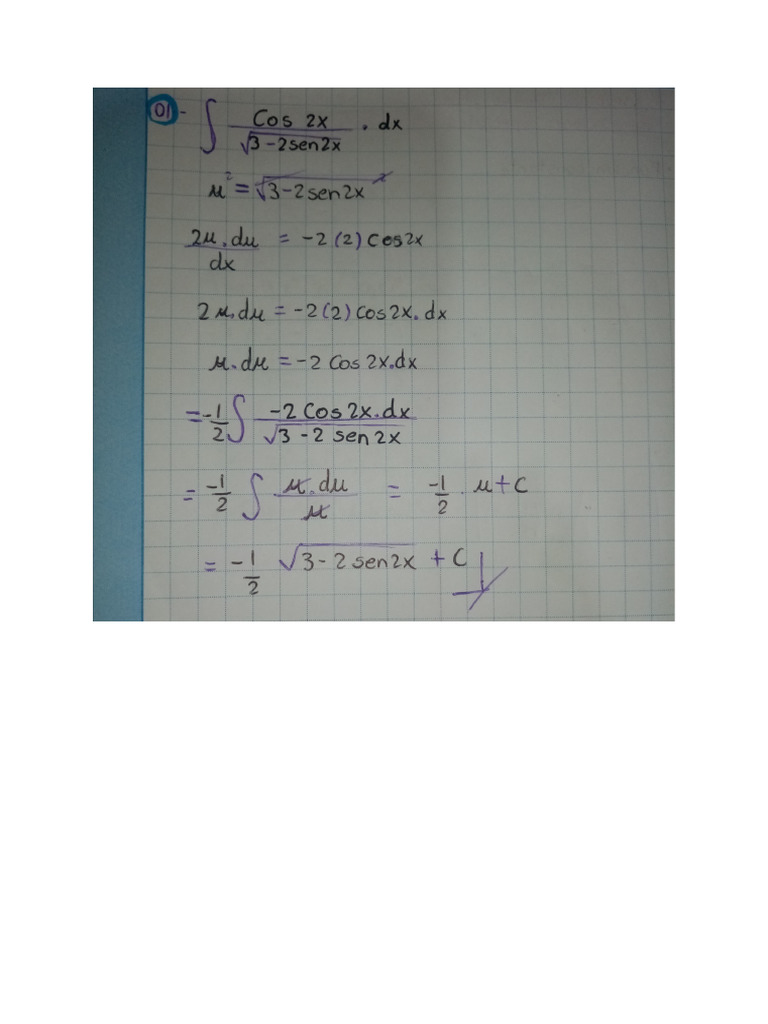 01- ∫ Cos 2x / √3-2sen2x . dx
μ² = √3-2sen2x ²
2μ.dμ / dx = -2(2) Cos2x
2μ.dμ = -2(2) Cos2x.dx
μ.dμ = -2 Cos 2x.dx
= -1/2 ∫ -2 Cos 2x.dx / √3-2 sen2x
= -1/2 ∫ μ.dμ / μ = -1/2 . μ+C
= -1/2 √3-2sen2x + C